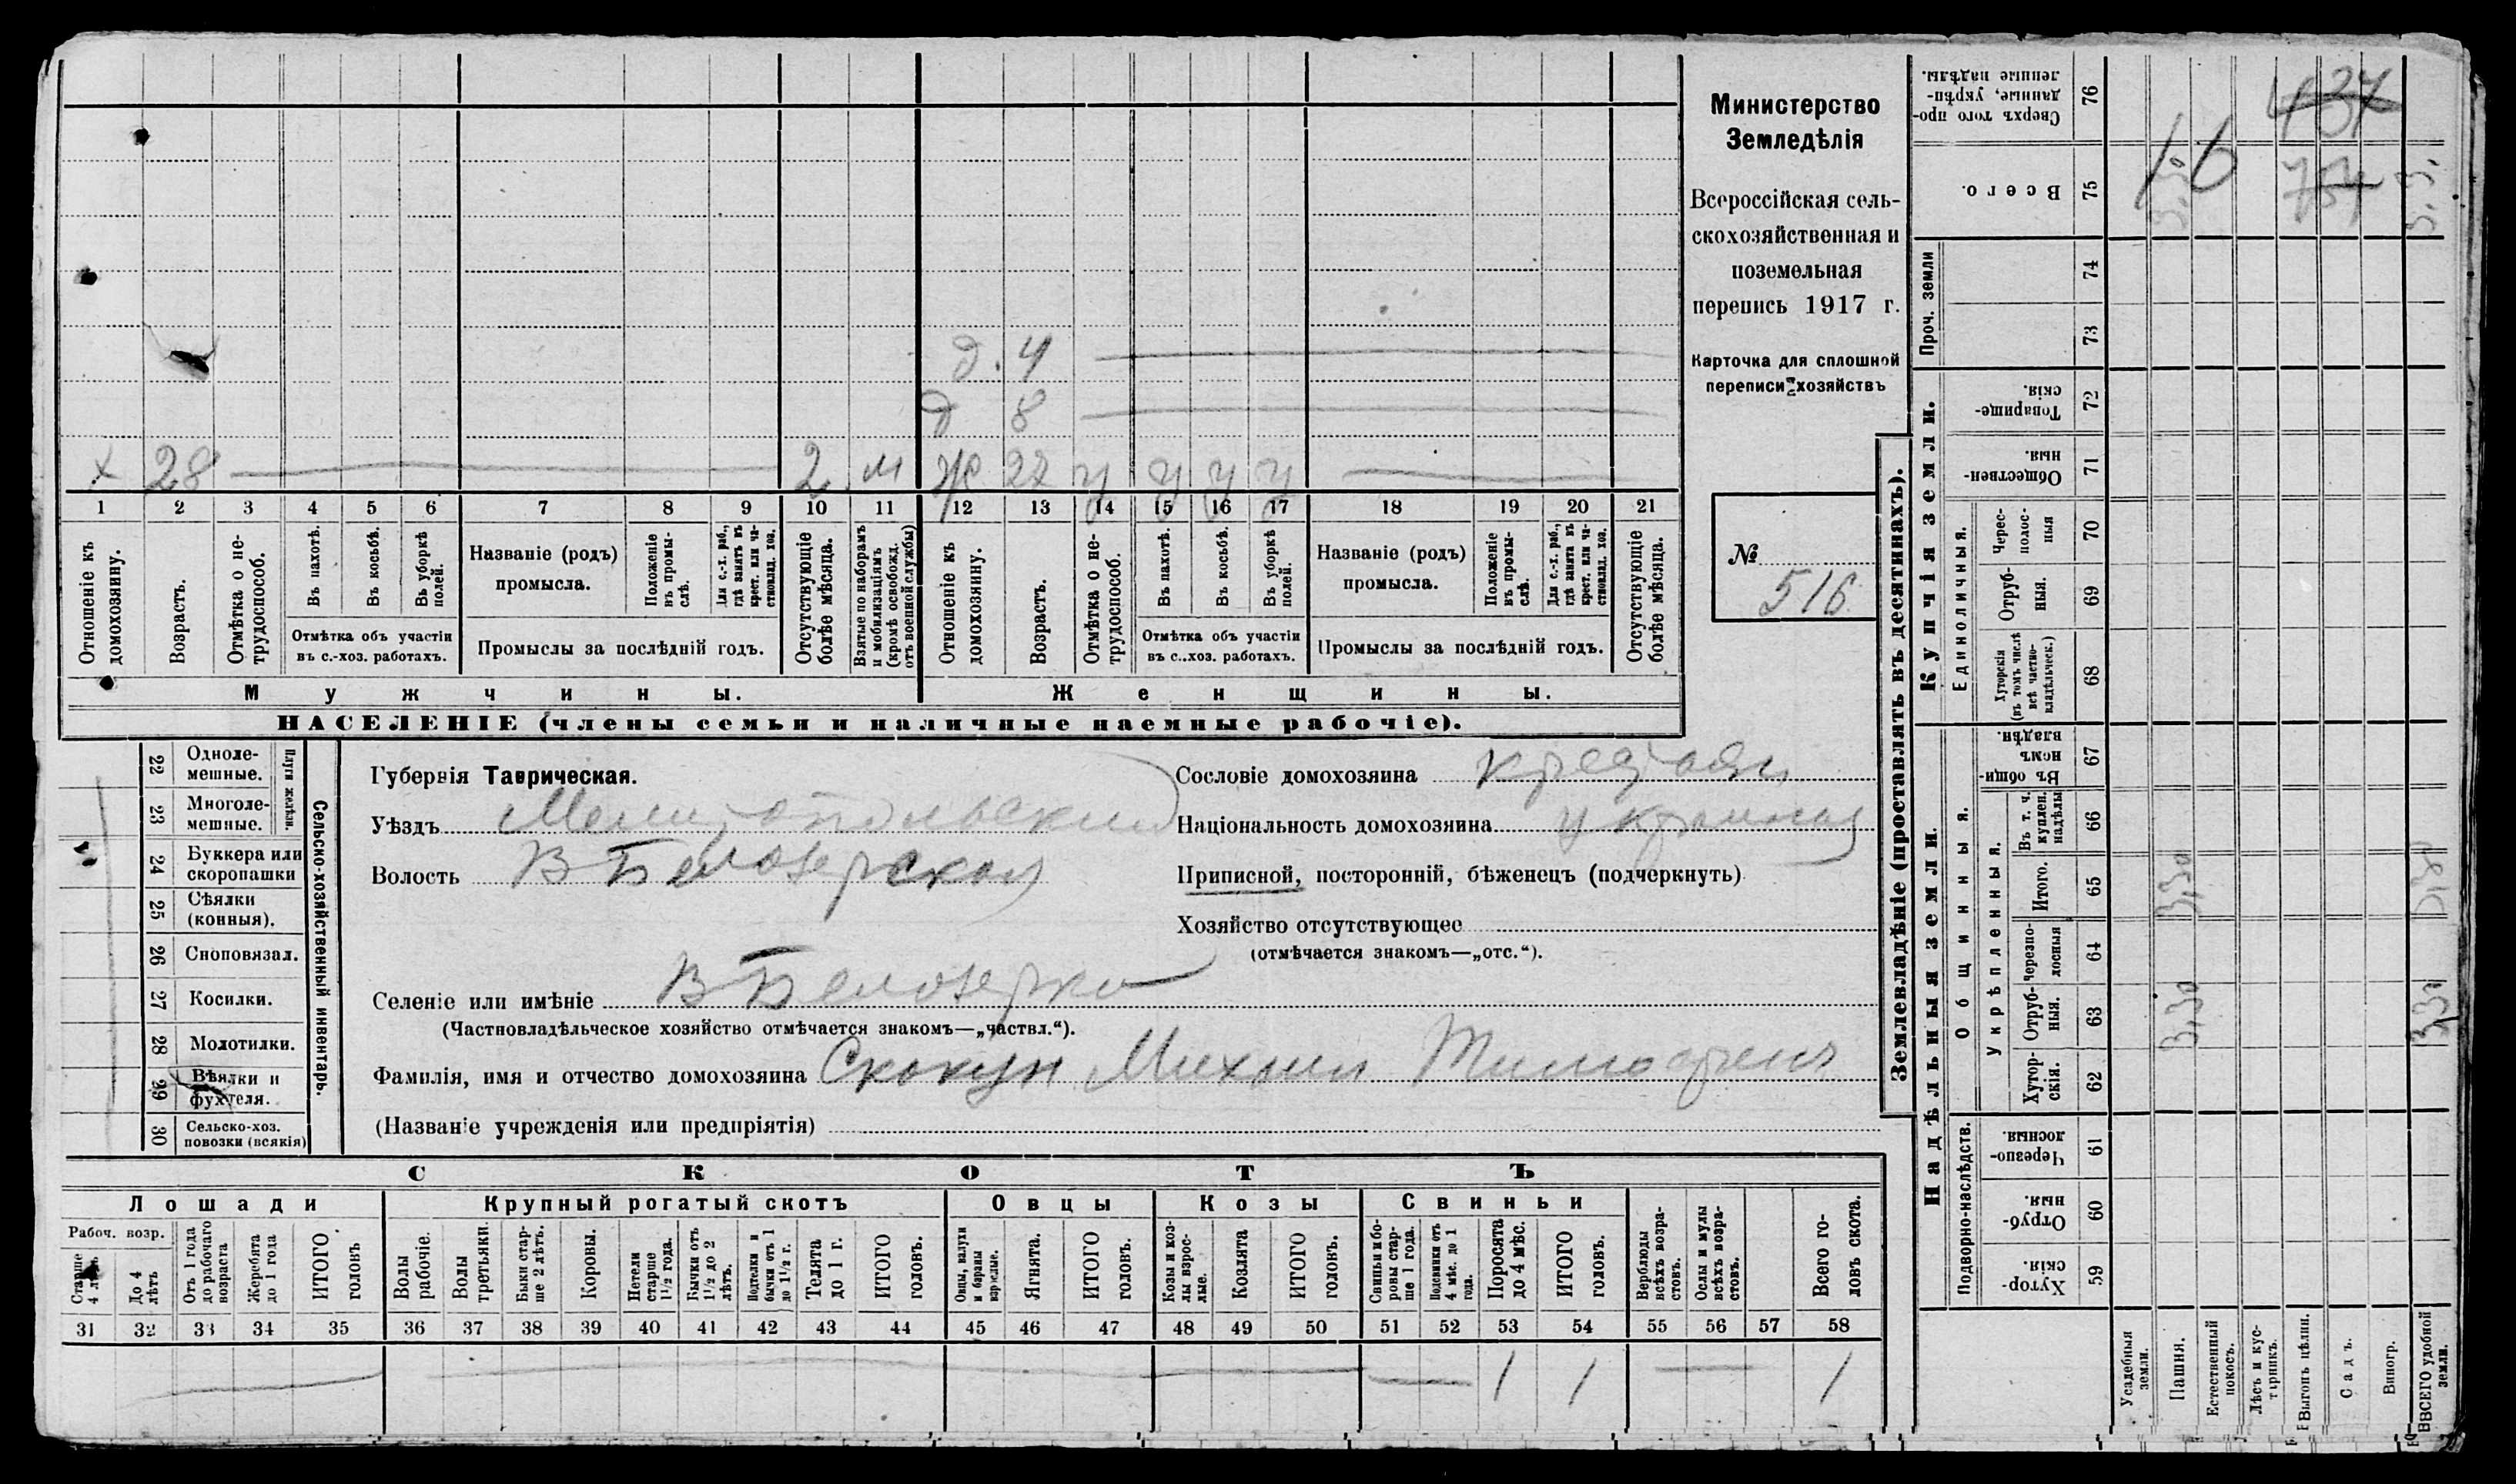 Министерство
Земледѣлія
Всероссійская сель-
скохозяйственная и
поземельная
перепись 1917 г.
Карточка для сплошной
переписи хозяйствъ
№
516
д. 4
д 8
х 28 2 м ж 22 у у у у
1 2 3 4 5 6 7 8 9 10 11 12 13 14 15 16 17 18 19 20 21
Отношеніе къ домохозяину.
Возрастъ.
Отмѣтка о не-трудоспособ.
Въ пахотѣ.
Въ косьбѣ.
Въ уборкѣ полей.
Отмѣтка объ участіи
въ с.-хоз. работахъ.
Названіе (родъ)
промысла.
Положеніе въ промы-слѣ.
Для с.-х. раб., гдѣ занятъ въ крест. или ча-стновлад. хоз.
Промыслы за послѣдній годъ.
Отсутствующіе болѣе мѣсяца.
Взятые по наборамъ и мобилизаціямъ (кромѣ освобожд. отъ военной службы)
Отношеніе къ домохозяину.
Возрастъ.
Отмѣтка о не-трудоспособ.
Въ пахотѣ.
Въ косьбѣ.
Въ уборкѣ полей.
Отмѣтка объ участіи
въ с..хоз. работахъ.
Названіе (родъ)
промысла.
Положеніе въ промы-слѣ.
Для с.-х. раб., гдѣ занята въ крест. или ча-стновлад. хоз.
Промыслы за послѣдній годъ.
Отсутствующіе болѣе мѣсяца.
Мужчины.
Женщины.
НАСЕЛЕНІЕ (члены семьи и наличные наемные рабочіе).
Сельско-хозяйственный инвентарь.
Плуги желѣзн.
22 Одноле-мешные.
23 Многоле-мешные.
24 Буккера или скоропашки
25 Сѣялки (конныя).
26 Сноповязал.
27 Косилки.
28 Молотилки.
29 Вѣялки и фухтеля.
30 Сельско-хоз. повозки (всякія)
Губернія Таврическая.
Уѣздъ Мелитопольский
Волость В Белозерская
Селеніе или имѣніе В Белозерка
(Частновладѣльческое хозяйство отмѣчается знакомъ—„частвл.“).
Фамилія, имя и отчество домохозяина Скокун Михаил Тимофеев
(Названіе учрежденія или предпріятія)
Сословіе домохозяина крестьян
Національность домохозяина
Приписной, посторонній, бѣженецъ (подчеркнуть)
Хозяйство отсутствующее
(отмѣчается знакомъ—„отс.“).
СКОТЪ
Лошади
Крупный рогатый скотъ
Овцы
Козы
Свиньи
Рабоч. возр.
Старше 4 лѣтъ
До 4 лѣтъ
Отъ 1 года до рабочаго возраста
Жеребята до 1 года
ИТОГО головъ
Волы рабочіе.
Волы третьяки.
Быки стар-ше 2 лѣтъ.
Коровы.
Нетели старше 1½ года.
Бычки отъ 1½ до 2 лѣтъ.
Подтелки и бычки отъ 1 до 1½ г.
Телята до 1 г.
ИТОГО головъ.
Овцы, валухи и бараны взрослые.
Ягнята.
ИТОГО головъ.
Козы и коз-лы взрос-лые.
Козлята
ИТОГО головъ.
Свиньи и бо-ровы стар-ше 1 года.
Подсвинки отъ 4 мѣс. до 1 года.
Поросята до 4 мѣс.
ИТОГО головъ.
Верблюды всѣхъ возра-стовъ.
Ослы и мулы всѣхъ возра-стовъ.
Всего го-ловъ скота.
31 32 33 34 35 36 37 38 39 40 41 42 43 44 45 46 47 48 49 50 51 52 53 54 55 56 57 58
1 1 1
Землевладѣніе (проставлять въ десятинахъ).
Купчія земли.
Надѣльныя земли.
Проч. земли
Единоличныя.
Общинныя.
Укрѣпленныя.
Подворно-наслѣдств.
76 Сверхъ того про-данные, укрѣп-ленные надѣлы.
75 Всего.
74
73
72 Товарище-скія.
71 Обществен-ныя.
70 Черес-полос-ныя
69 Отруб-ныя.
68 Хуторскія (въ томъ числѣ всѣ частно-владѣльческ.)
67 Въ общи-номъ владѣн.
66 Въ т. ч. куплен. надѣлы
65 Итого.
64 Черезпо-лосныя
63 Отруб-ныя.
62 Хутор-скія.
61 Черезпо-лосныя.
60 Отруб-ныя.
59 Хутор-скія.
Усадебныя земли.
Пашня.
Естественный покосъ.
Лѣсъ и кус-тарникъ.
Выгонъ цѣлин.
Садъ.
Виногр.
ВСЕГО удобной земли.
16
3,30
3,30
3,30
3,30